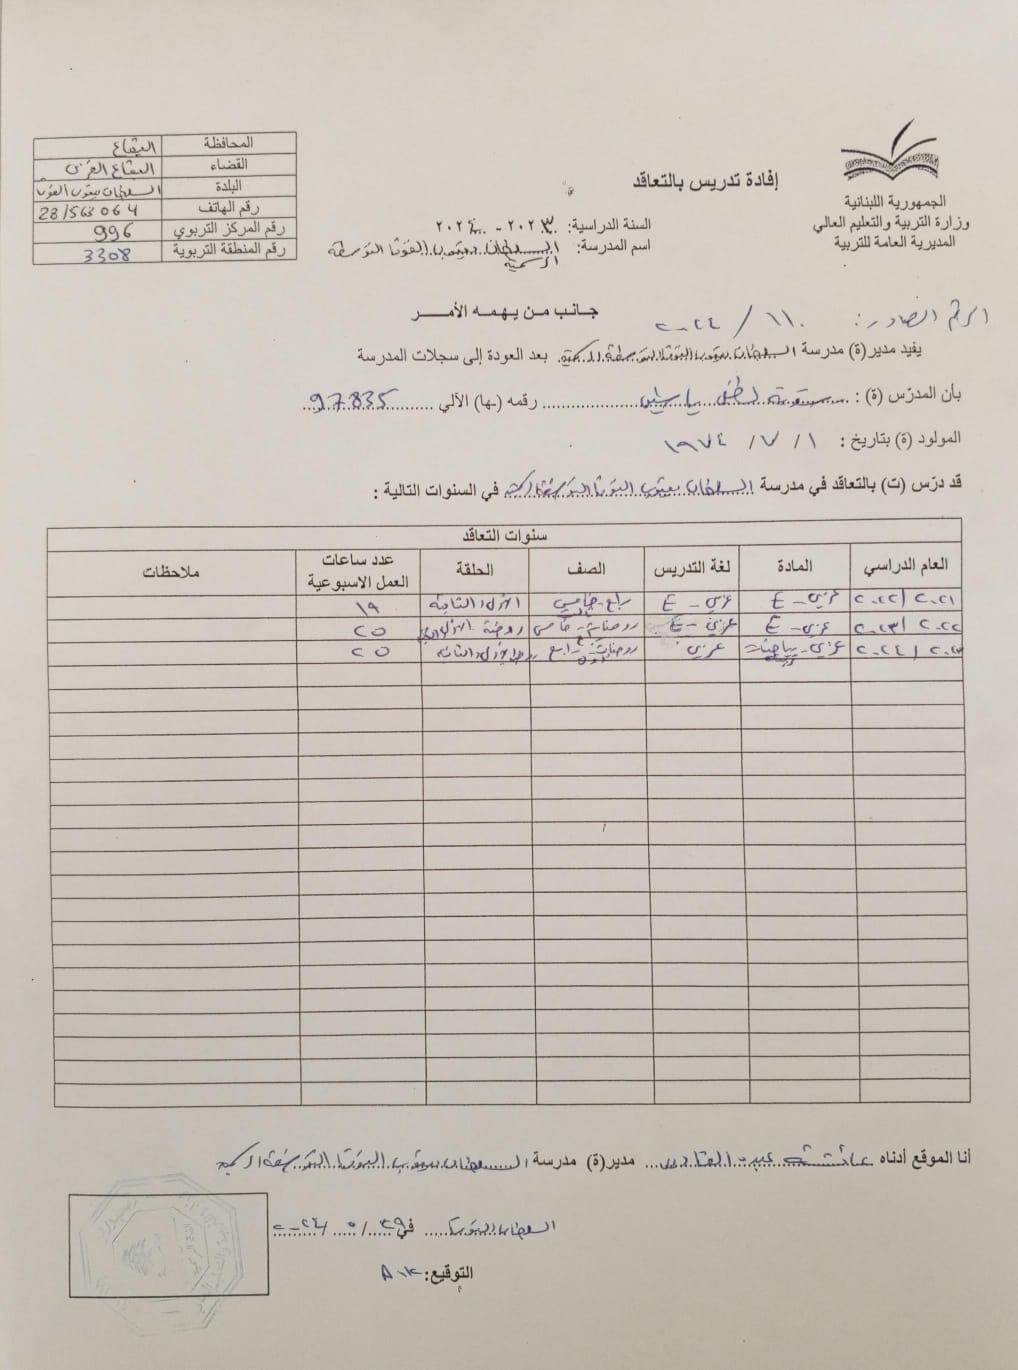 الجمهورية اللبنانية
وزارة التربية والتعليم العالي
المديرية العامة للتربية
إفادة تدريس بالتعاقد
السنة الدراسية: ٢٠٢٣ - ٢٠٢٤
اسم المدرسة: السلطان يعقوب الفوقا المتوسطة
الرسمية
المحافظة البقاع
القضاء البقاع الغربي
البلدة السلطان يعقوب الفوقا
رقم الهاتف 28/563064
رقم المركز التربوي 996
رقم المنطقة التربوية 3308
جانب من يهمه الأمر
الرقم الصادر: ١١٠ / ٢٠٢٤
يفيد مدير(ة) مدرسة السلطان يعقوب الفوقا المتوسطة الرسمية بعد العودة إلى سجلات المدرسة
بأن المدرّس (ة) : لطفي ياسين رقمه (ـها) الآلي 97835
المولود (ة) بتاريخ : ١ / ٧ / ١٩٧٤
قد درّس (ت) بالتعاقد في مدرسة السلطان يعقوب الفوقا المتوسطة الرسمية في السنوات التالية :
سنوات التعاقد
العام الدراسي المادة لغة التدريس الصف الحلقة عدد ساعات العمل الاسبوعية ملاحظات
٢٠٢١ / ٢٠٢٢ عربي - E عربي - E رابع - خامس الأولى الثانية ١٩
٢٠٢٢ / ٢٠٢٣ عربي - E عربي - E روضات - خامس روضة الأولى ٢٥
٢٠٢٣ / ٢٠٢٤ عربي - رياضيات عربي روضات رابع الأولى الثانية ٢٥
أنا الموقع أدناه عائشة عبد القادر مدير(ة) مدرسة السلطان يعقوب الفوقا المتوسطة الرسمية
السلطان يعقوب في ٢٩ / ٥ / ٢٠٢٤
التوقيع: